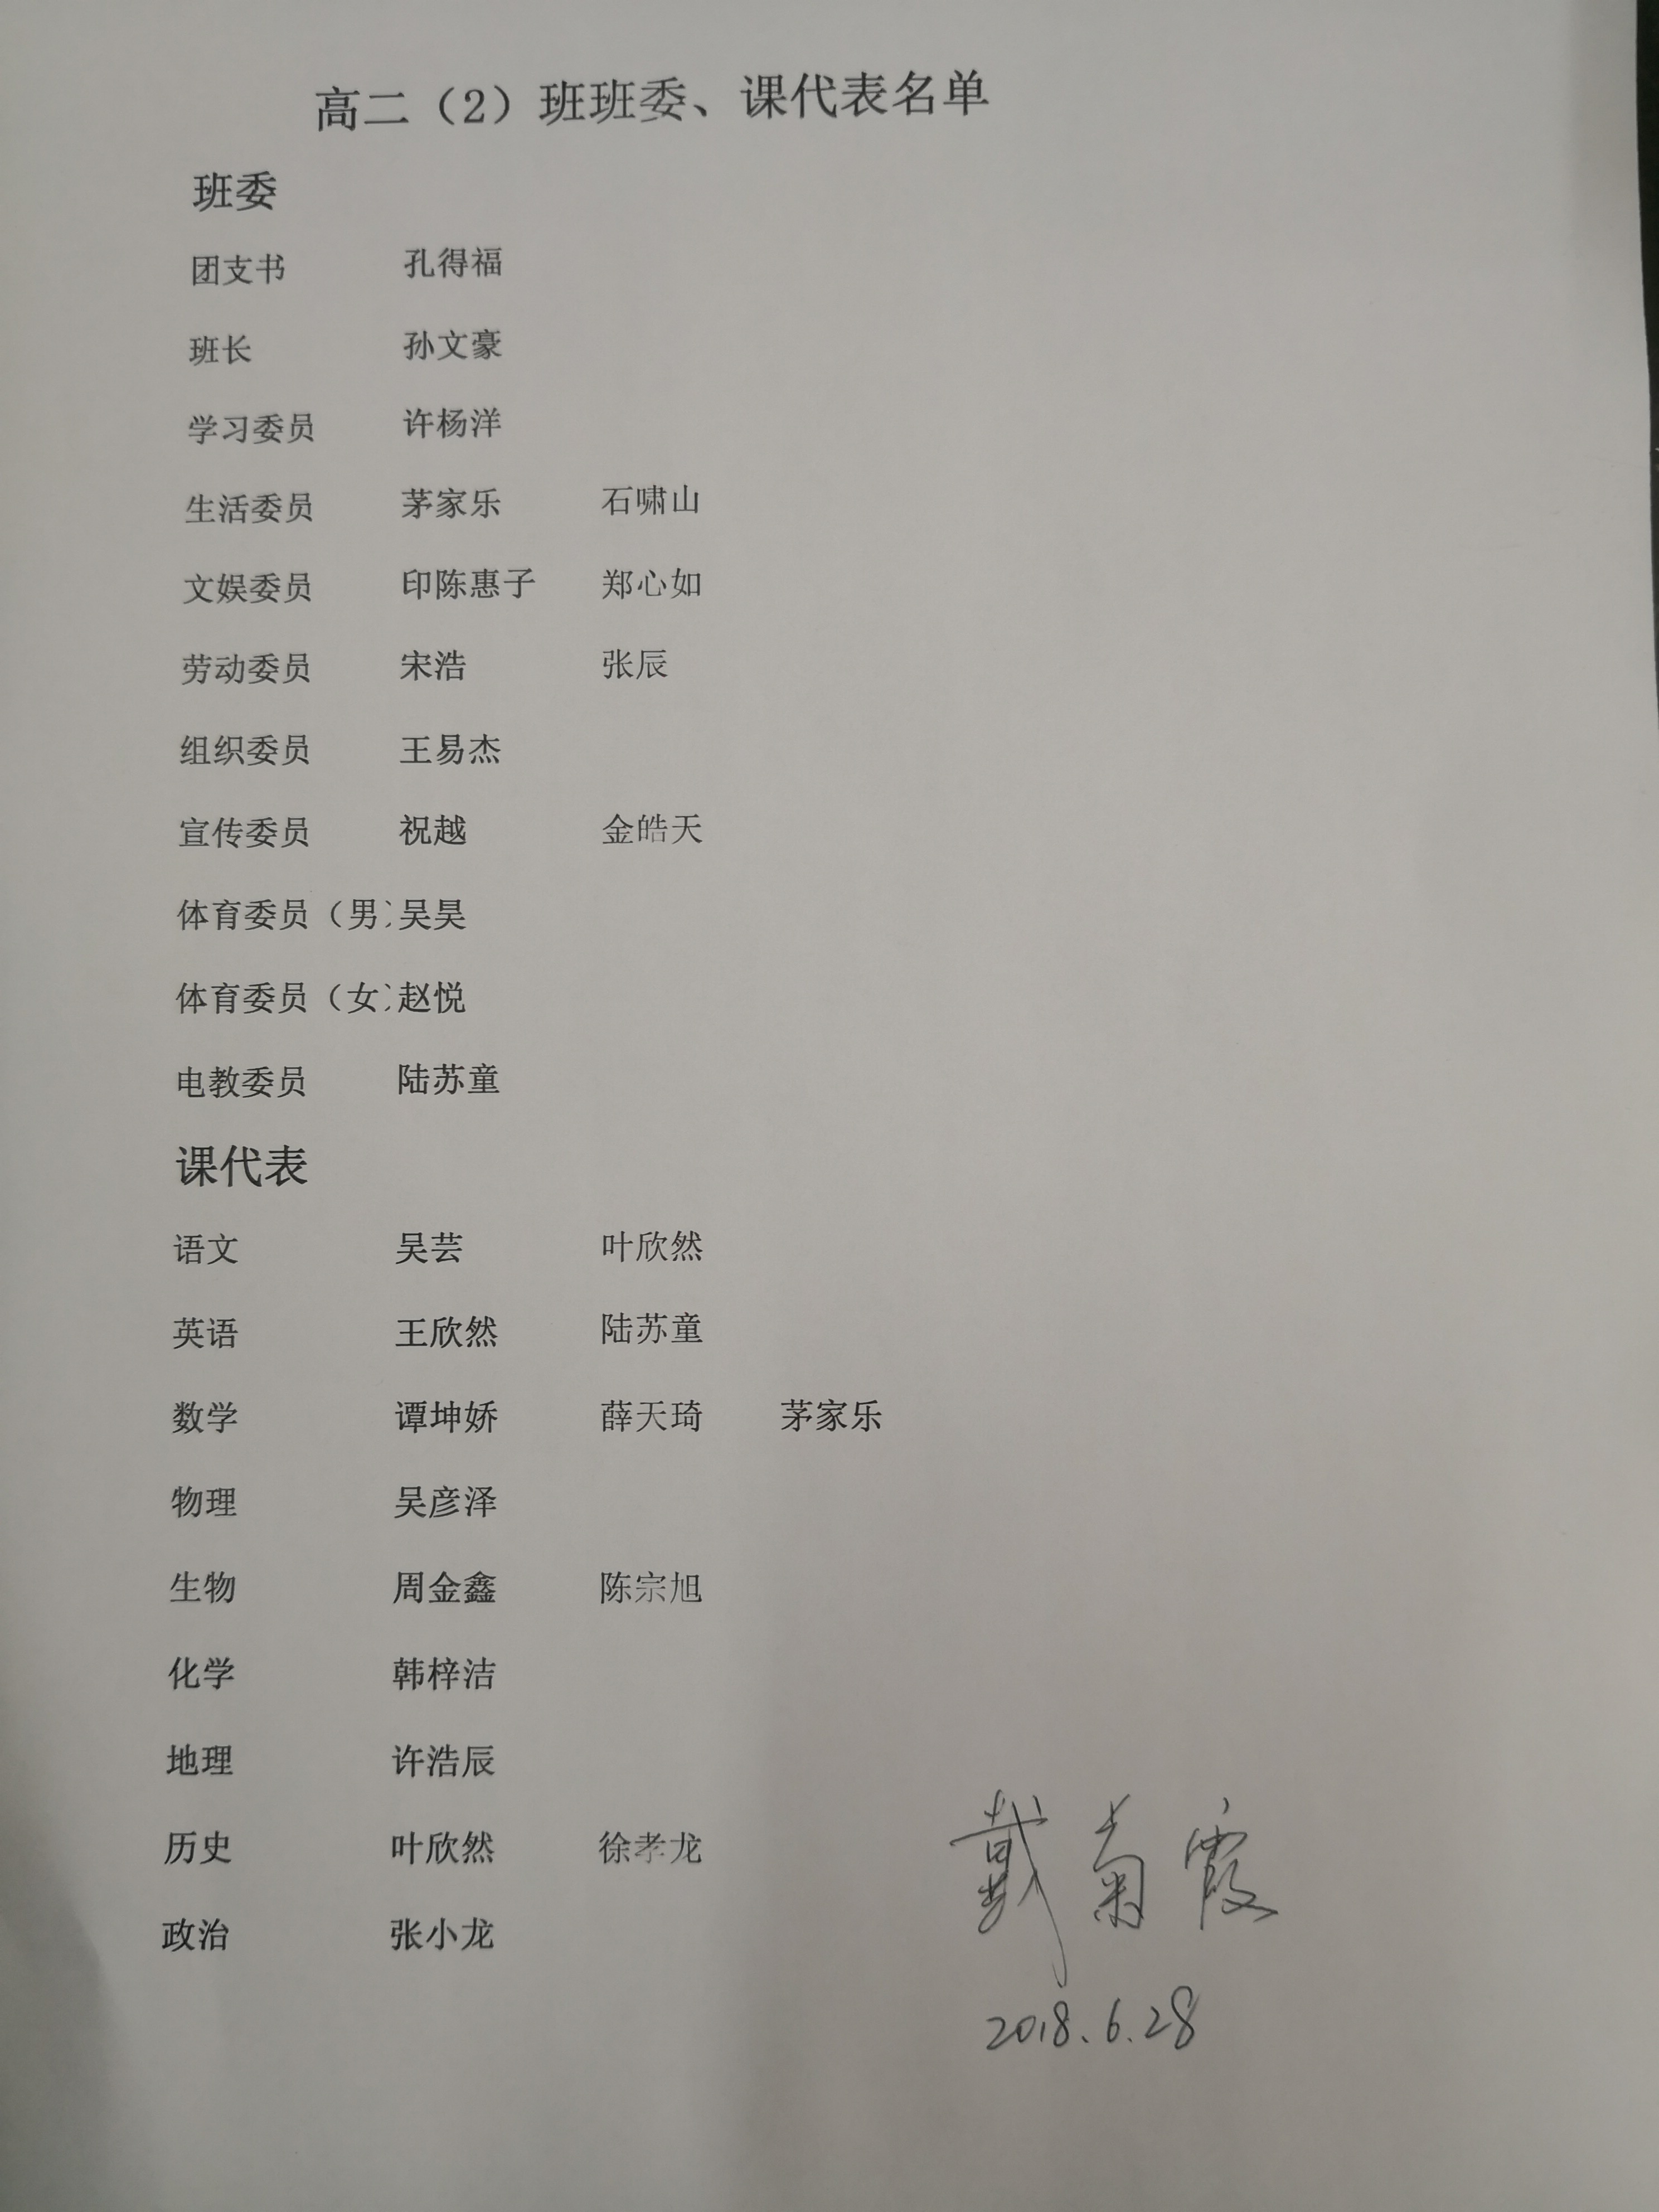 高二（2）班班委、课代表名单
班委
团支书 孔得福
班长 孙文豪
学习委员 许杨洋
生活委员 茅家乐 石啸山
文娱委员 印陈惠子 郑心如
劳动委员 宋浩 张辰
组织委员 王易杰
宣传委员 祝越 金皓天
体育委员（男）吴昊
体育委员（女）赵悦
电教委员 陆苏童
课代表
语文 吴芸 叶欣然
英语 王欣然 陆苏童
数学 谭坤娇 薛天琦 茅家乐
物理 吴彦泽
生物 周金鑫 陈宗旭
化学 韩梓洁
地理 许浩辰
历史 叶欣然 徐孝龙
政治 张小龙
戴菊霞
2018.6.28